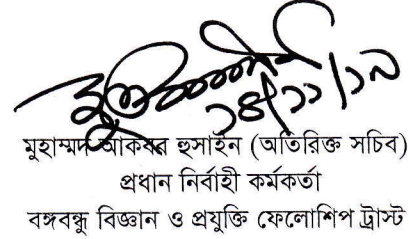 ১৪/১১/১৯
মুহাম্মদ আকবর হুসাইন (অতিরিক্ত সচিব)
প্রধান নির্বাহী কর্মকর্তা
বঙ্গবন্ধু বিজ্ঞান ও প্রযুক্তি ফেলোশিপ ট্রাস্ট